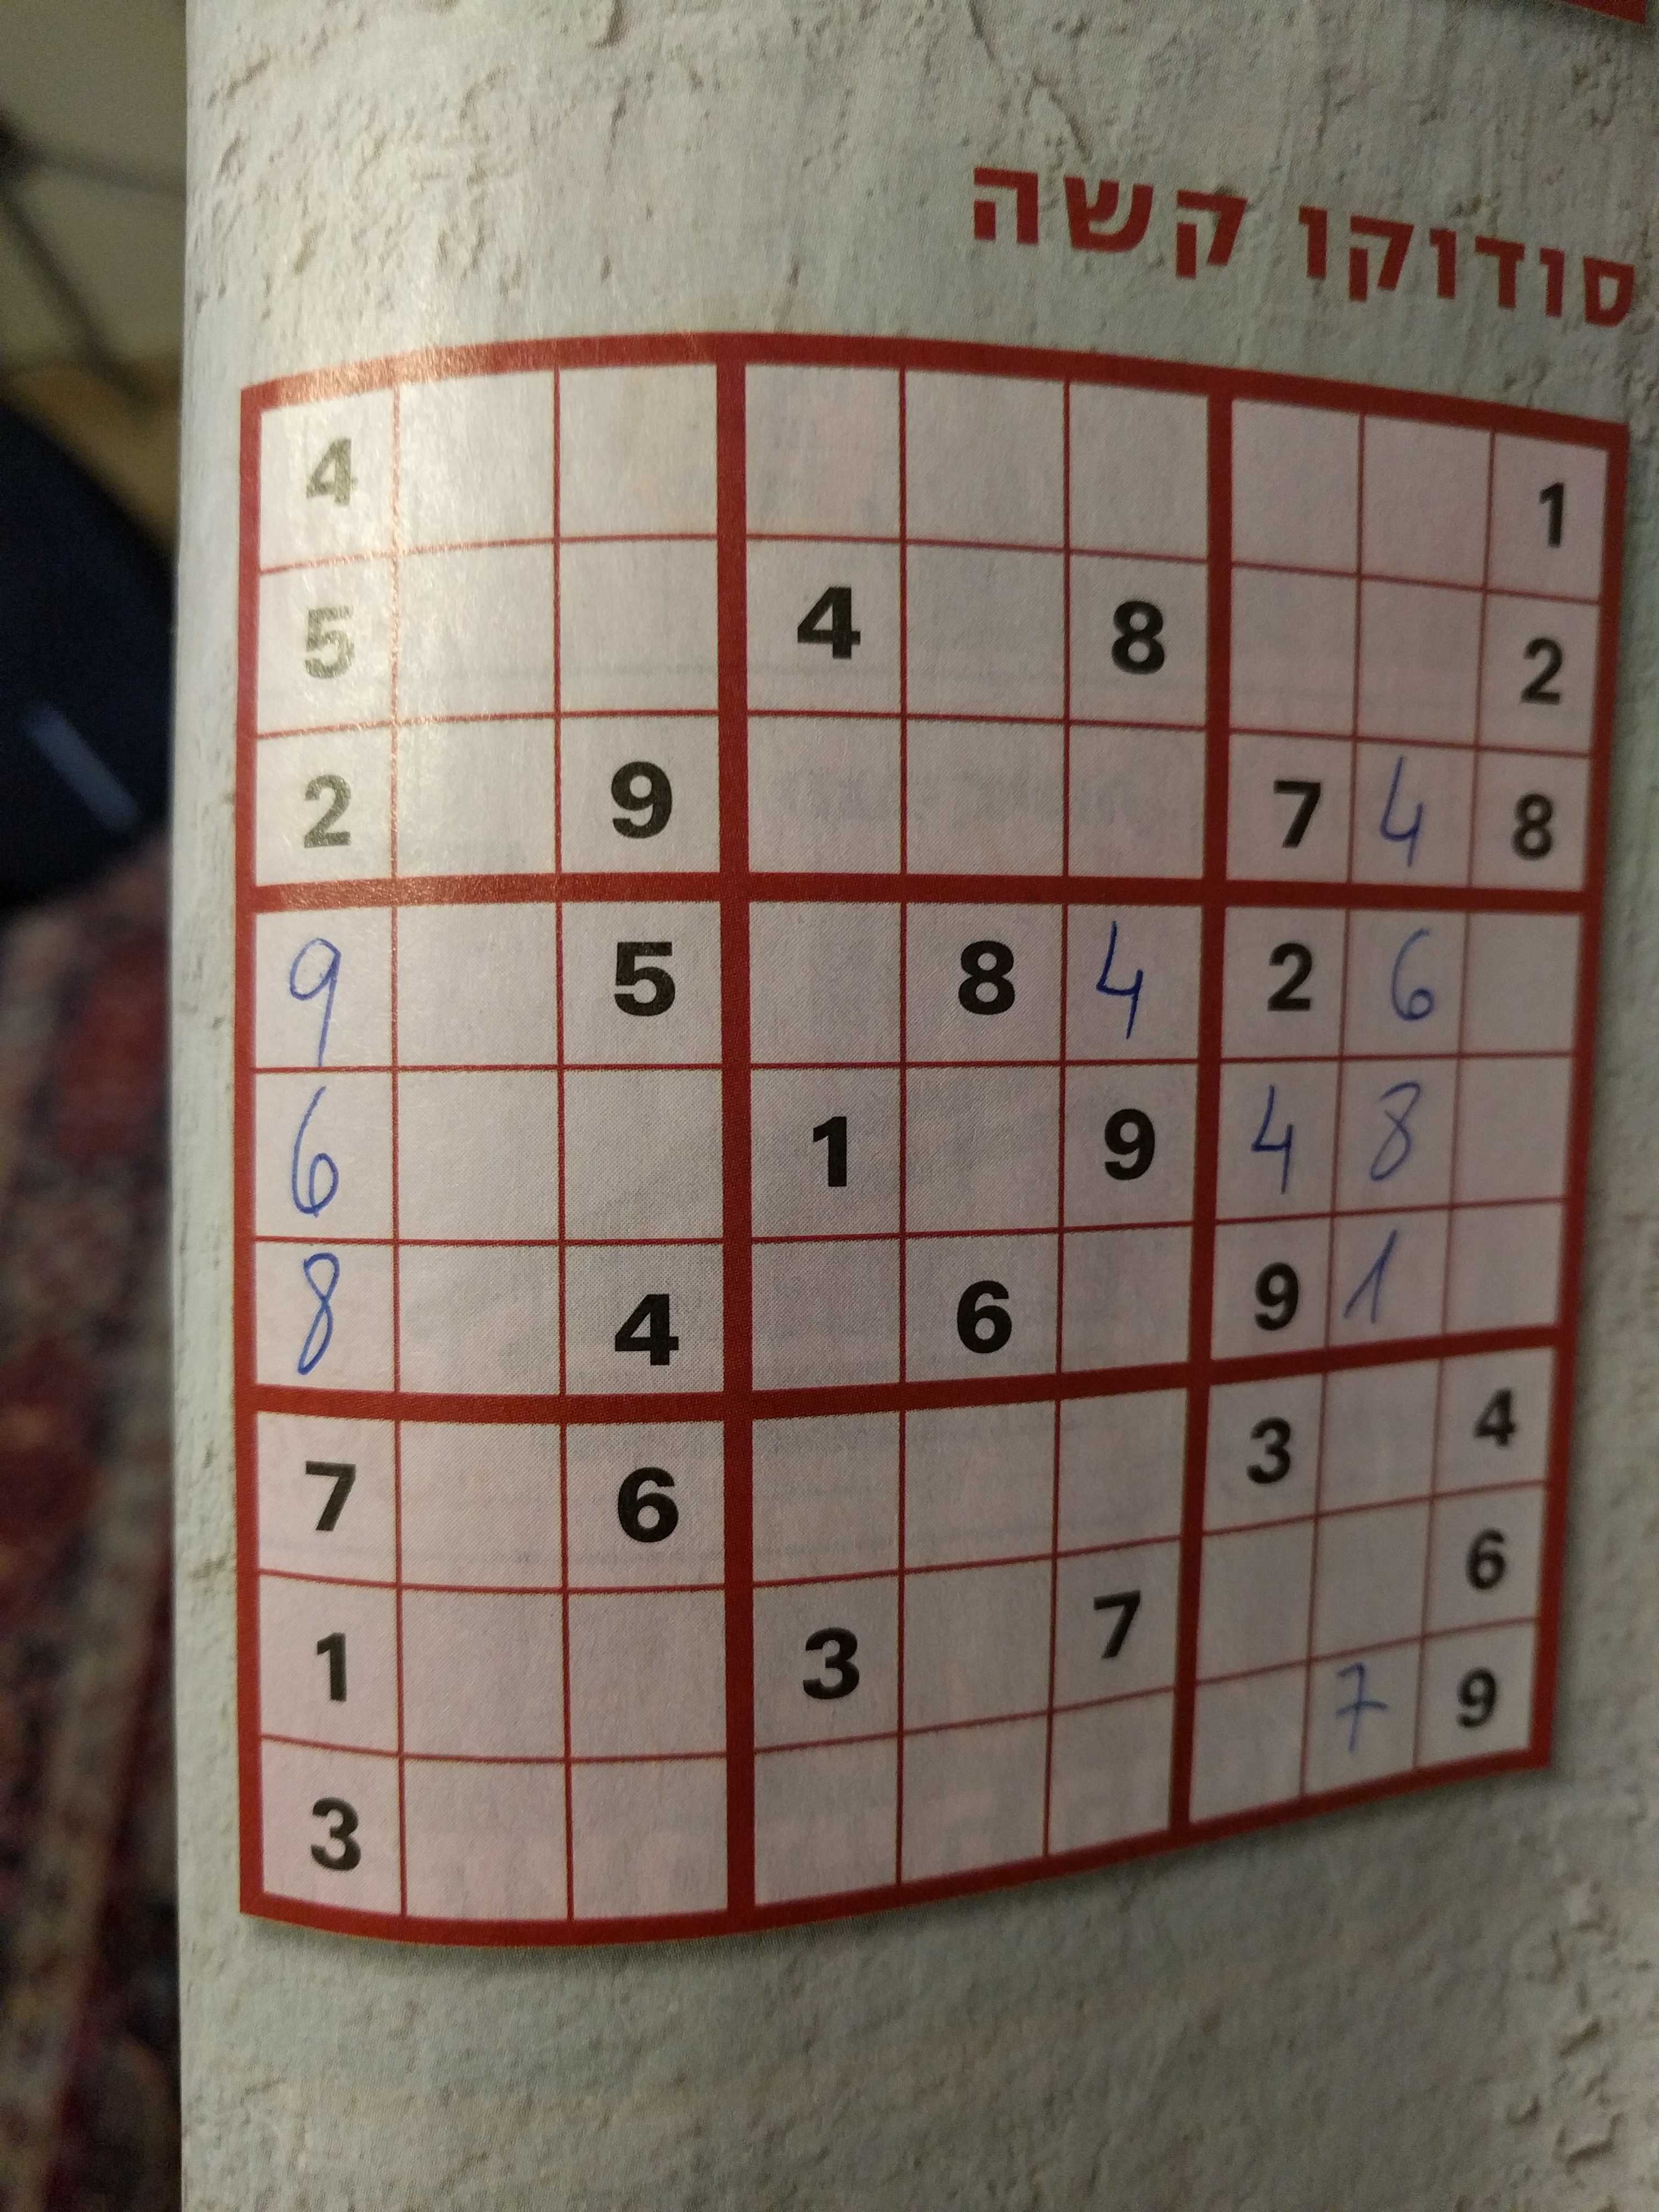 סודוקו קשה
4 1
5 4 8 2
2 9 7 4 8
9 5 8 4 2 6
6 1 9 4 8
8 4 6 9 1
7 6 3 4
1 3 7 6
3 7 9